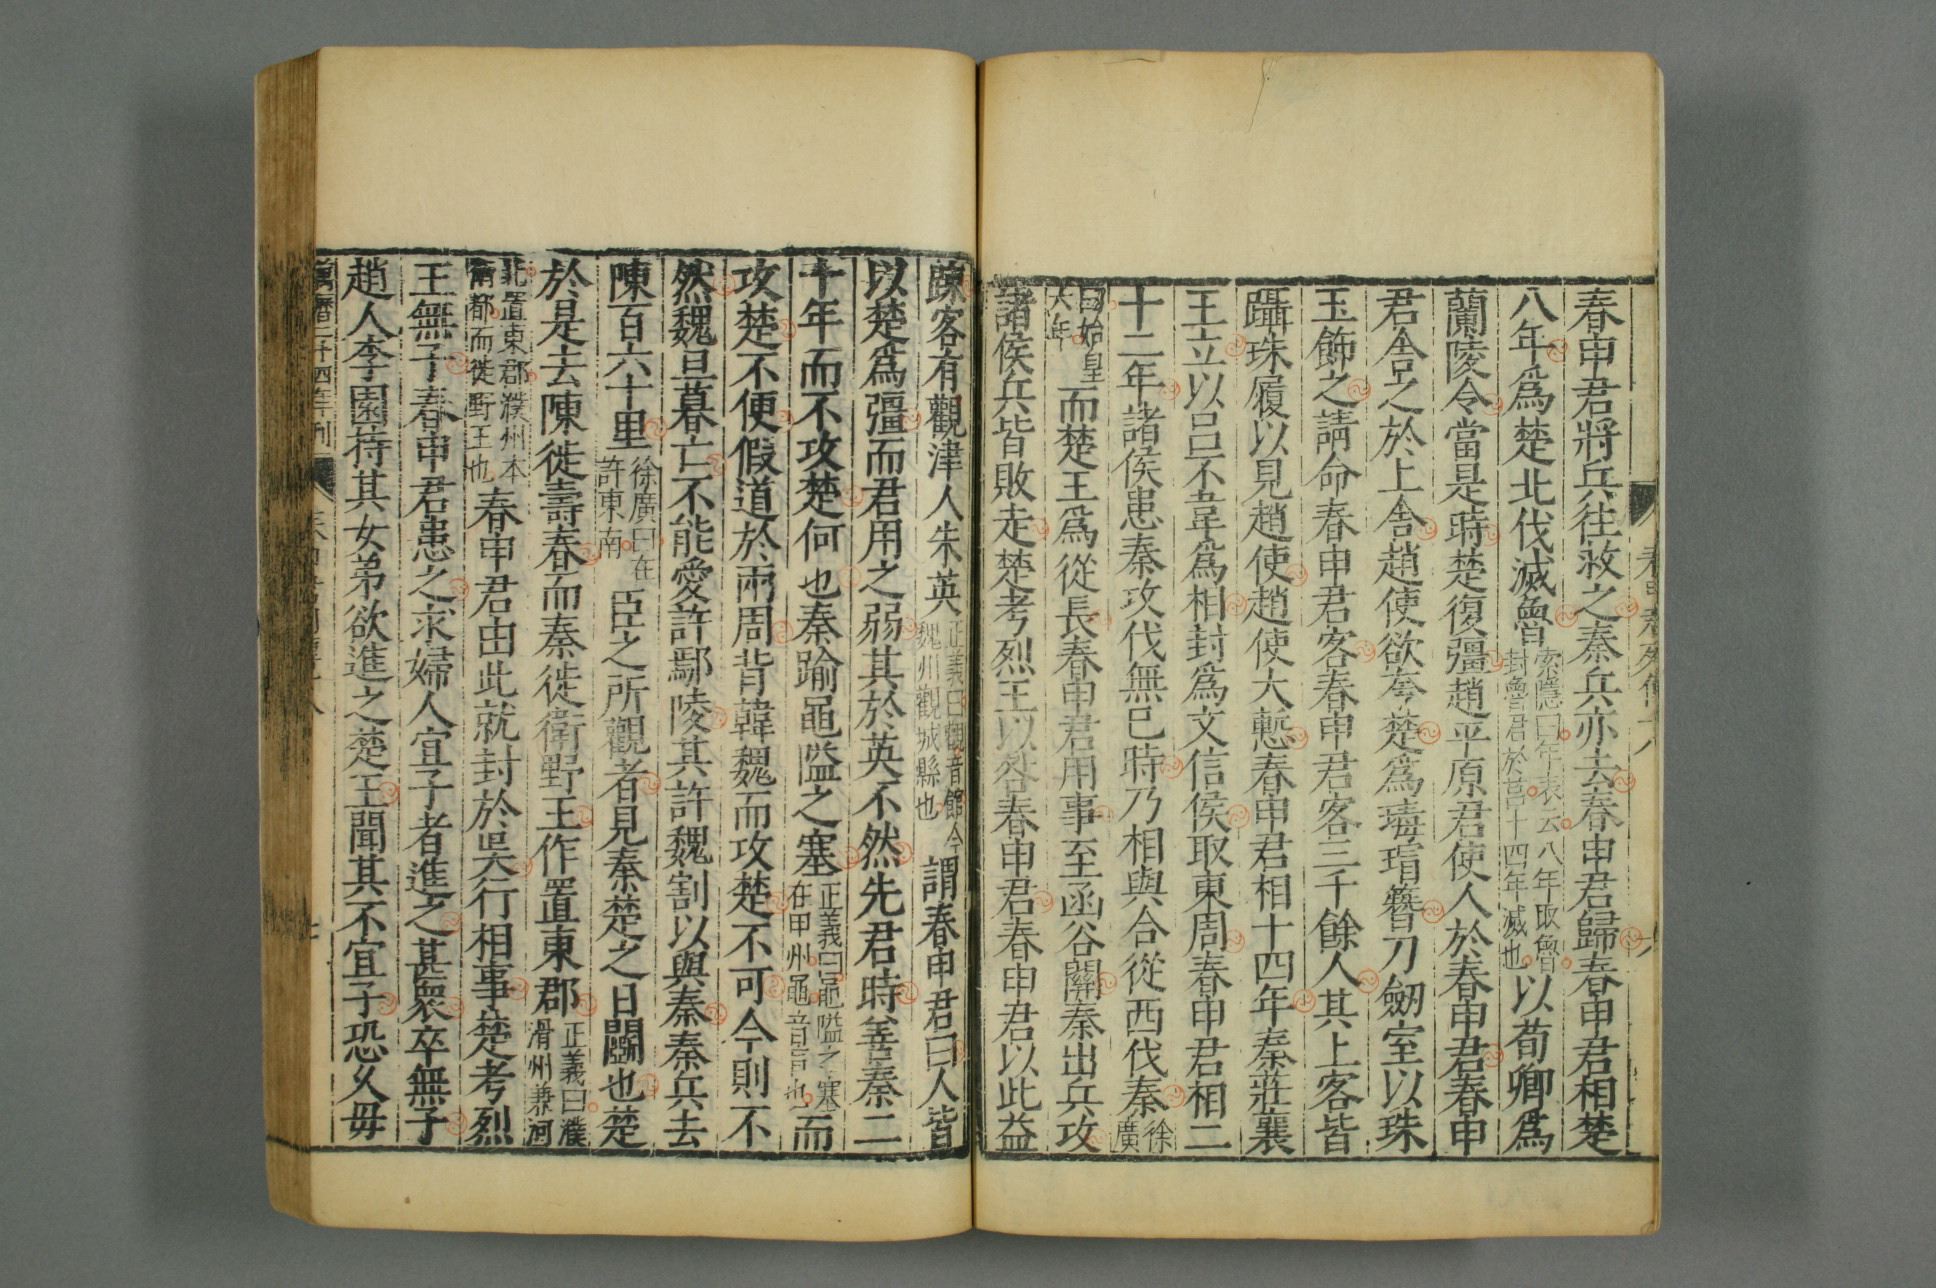 春申君列傳十八 六
春申君將兵往救之秦兵亦去春申君歸春申君相楚
八年爲楚北伐滅魯索隱曰年表云八年取魯封魯君於莒十四年滅也以荀卿爲
蘭陵令當是時楚復彊趙平原君使人於春申君春申
君舍之於上舍趙使欲夸楚爲瑇瑁簪刀劒室以珠
玉飾之請命春申君客春申君客三千餘人其上客皆
躡珠履以見趙使趙使大慙春申君相十四年秦莊襄
王立以呂不韋爲相封爲文信侯取東周春申君相二
十二年諸侯患秦攻伐無已時乃相與合從西伐秦徐廣
曰始皇六年而楚王爲從長春申君用事至函谷關秦出兵攻
諸侯兵皆敗走楚考烈王以咎春申君春申君以此益
踈客有觀津人朱英正義曰觀音館今魏州觀城縣也謂春申君曰人皆
以楚爲彊而君用之弱其於英不然先君時善秦二
十年而不攻楚何也秦踰黽隘之塞正義曰黽隘之塞在申州黽音盲也而
攻楚不便假道於兩周背韓魏而攻楚不可今則不
然魏旦暮亡不能愛許鄢陵其許魏割以與秦秦兵去
陳百六十里徐廣曰在許東南臣之所觀者見秦楚之日鬭也楚
於是去陳徙壽春而秦徙衛野王作置東郡正義曰濮滑州兼河
北置東郡濮州本衛都而徙野王也春申君由此就封於吳行相事楚考烈
王無子春申君患之求婦人宜子者進之甚衆卒無子
趙人李園持其女弟欲進之楚王聞其不宜子恐久毋
萬曆二十四年刊 七